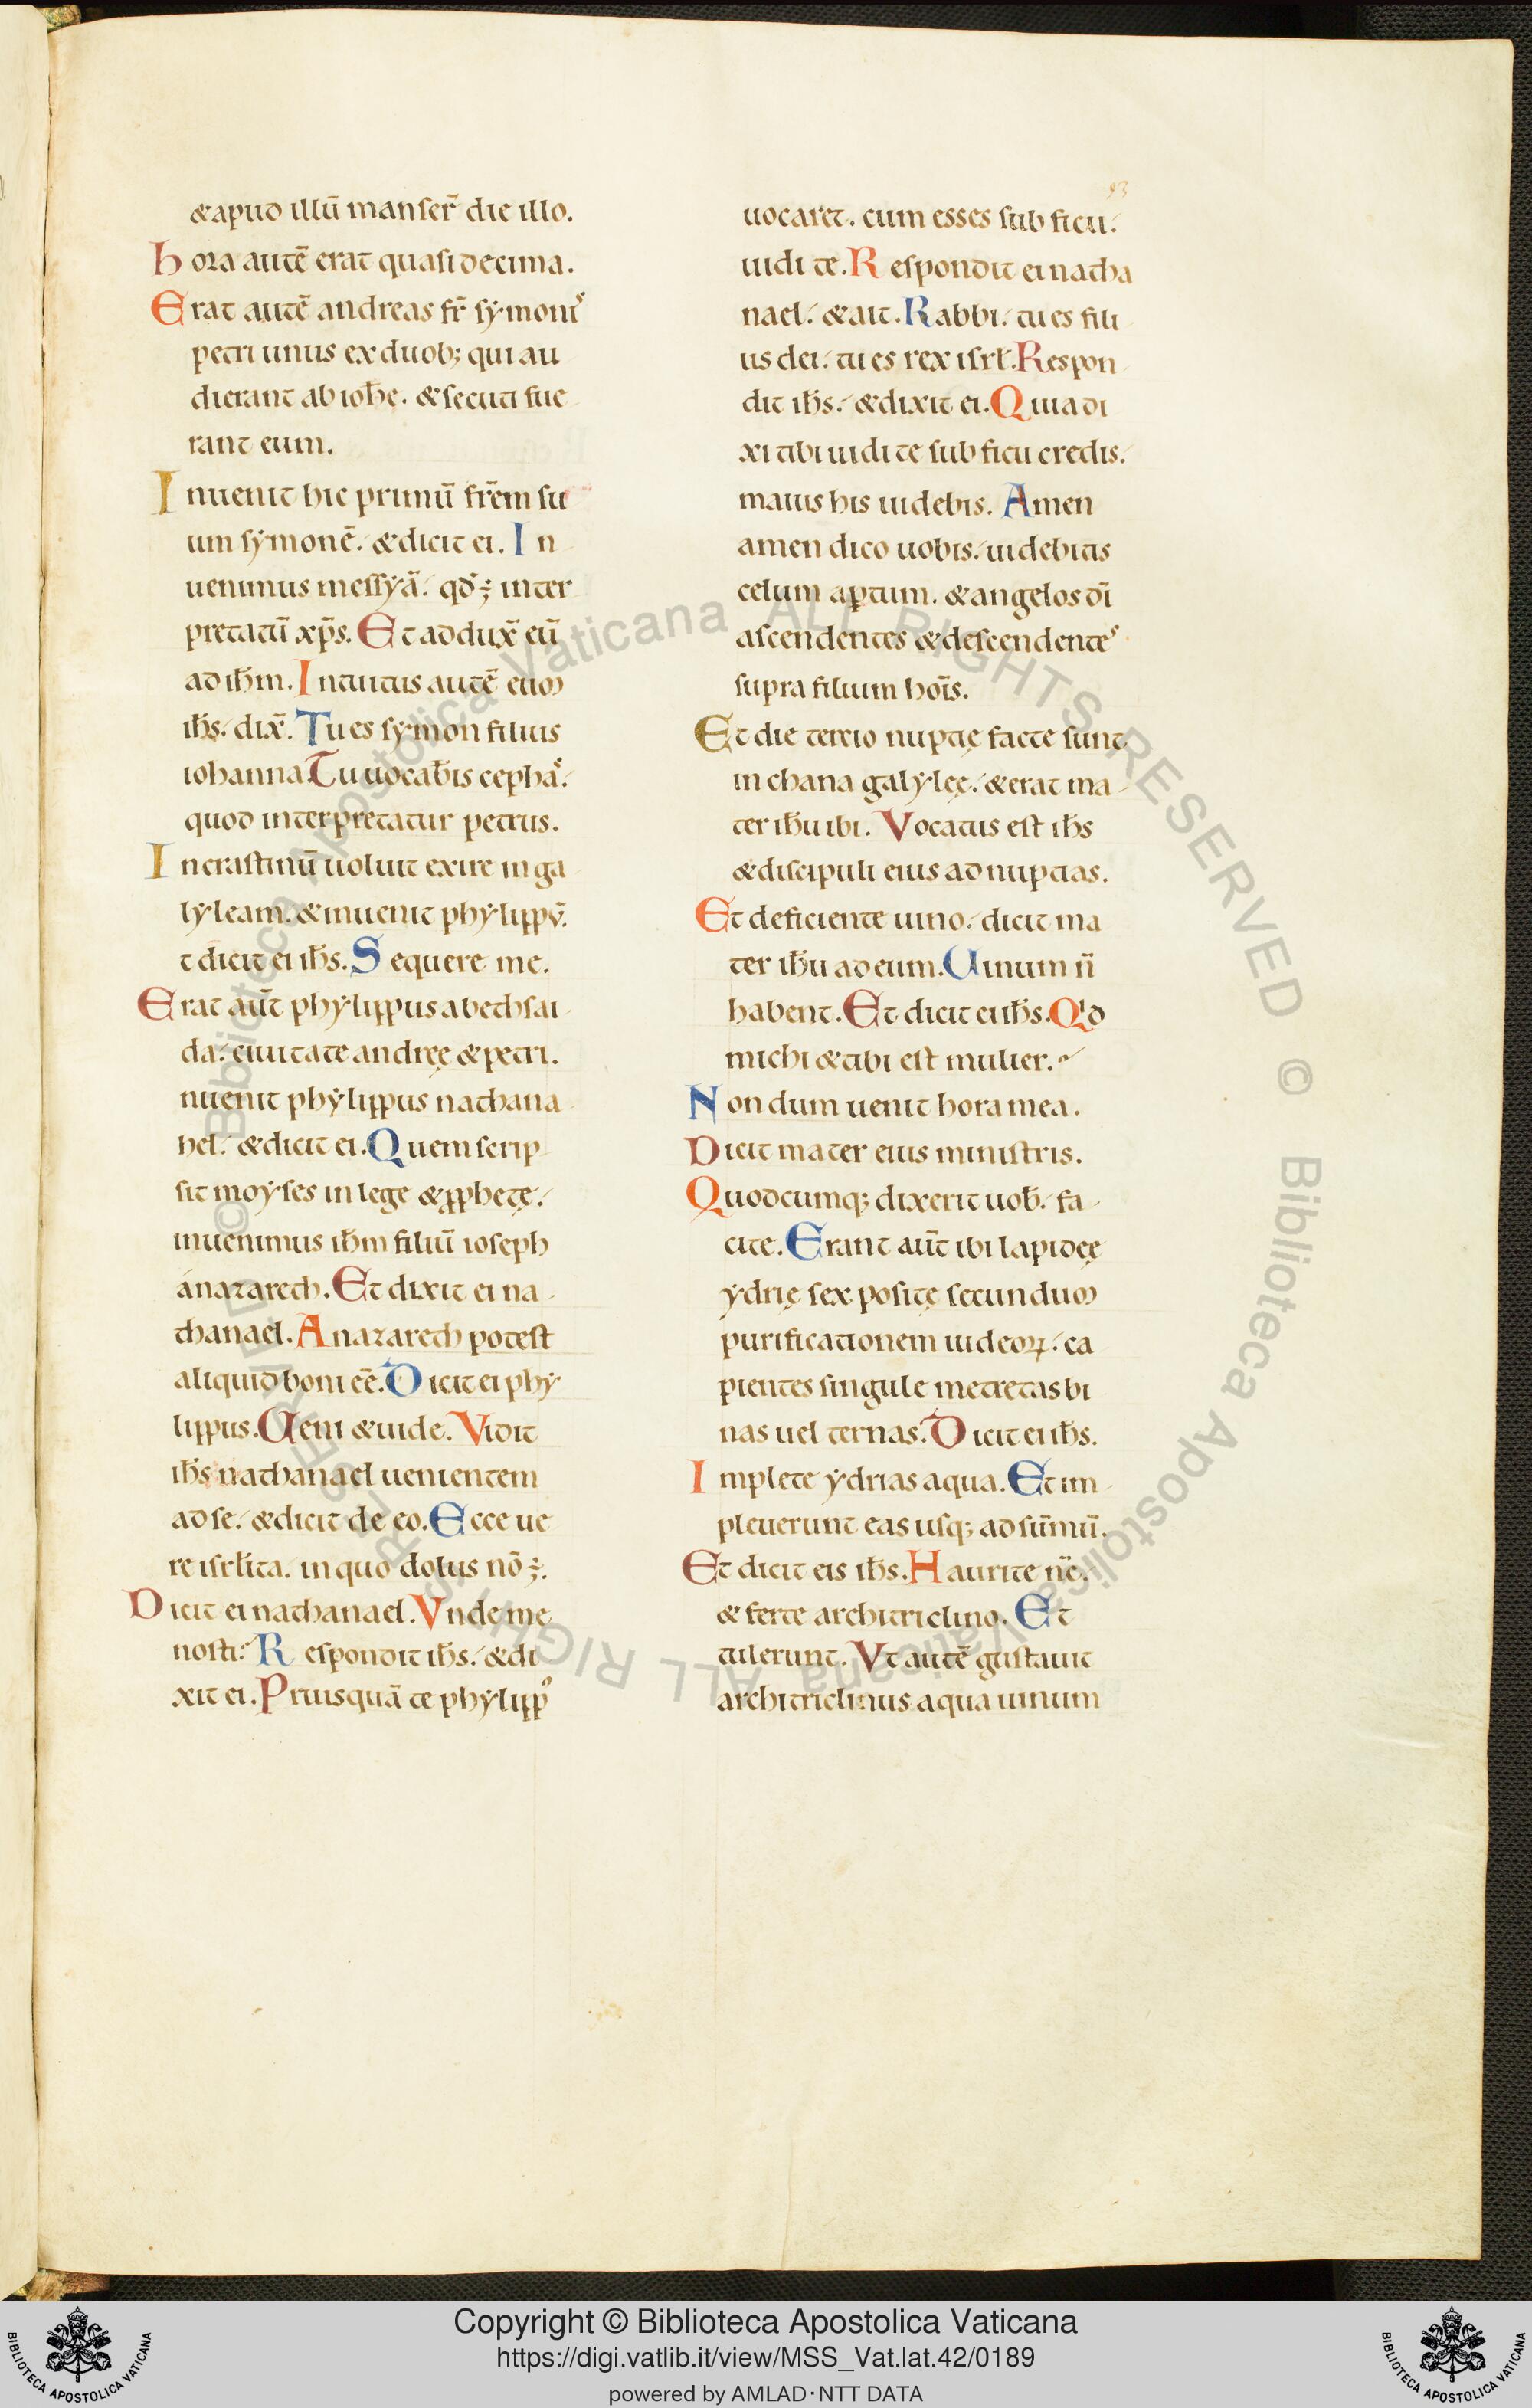 93
&apud illū manser̄ die illo.
hora autē erat quasi decima.
Erat autē andreas fr̄ symonis
petri unus ex duob; qui au
dierant ab ioh̄e. & secuti fue
rant eum.
Inuenit hic primū fr̄em su
um symonē. & dicit ei. In
uenimus messyā. qđ ÷ inter
pretatū xp̄s. Et addux̄ eū
ad ih̄m. Intuitus autē eum
ih̄s. dix̄. Tu es symon filius
iohanna Tu uocab̄is cephas.
quod interpretatur petrus.
In crastinū uoluit exire in ga
lyleam. & inuenit phylippū.
t dicit ei ih̄s. Sequere me.
Erat aūt phylippus a bethsai
da. ciuitate andreę & petri.
nuenit phylippus nathana
hel. & dicit ei. Quem scrip
sit moyses in lege & ꝓphetę.
inuenimus ih̄m filiū ioseph
a nazareth. Et dixit ei na
thanael. A nazareth potest
aliquid boni eē. Dicit ei phy
lippus. Ueni & uide. Vidit
ih̄s nathanael uenientem
ad se. & dicit de eo. Ecce ue
re isrl̄ita. in quo dolus nō ÷.
Dicit ei nathanael. Vnde me
nosti. Respondit ih̄s. & di
xit ei. Priusquā te phylippꝰ
uocaret. cum esses sub ficu.
uidi te. Respondit ei natha
nael. & ait. Rabbi. tu es fili
us dei. tu es rex isrl̄. Respon
dit ih̄s. & dixit ei. Quia di
xi tibi uidi te sub ficu credis.
maius his uidebis. Amen
amen dico uobis. uidebitis
celum aꝑtum. & angelos dī
ascendentes & descendentes
supra filium hoīs.
Et die tertio nuptię facte sunt
in chana galylęę. & erat ma
ter ih̄u ibi. Vocatus est ih̄s
& discipuli eius ad nuptias.
Et deficiente uino. dicit ma
ter ih̄u ad eum. Uinum n̄
habent. Et dicit ei ih̄s. Qⁱd
michi & tibi est mulier.
Nondum uenit hora mea.
Dicit mater eius ministris.
Quodcumq; dixerit uob̄. fa
cite. Erant aūt ibi lapidęę
ydrię sex positę secundum
purificationem iudeoꝝ. ca
pientes singule metretas bi
nas uel ternas. Dicit ei ih̄s.
Implete ydrias aqua. Et im
pleuerunt eas usq; ad sūmū.
Et dicit eis ih̄s. Haurite nc̄.
& ferte architriclino. Et
tulerunt. Vt autē gustauit
architriclinus aqua uinum
Copyright © Biblioteca Apostolica Vaticana
https://digi.vatlib.it/view/MSS_Vat.lat.42/0189
powered by AMLAD·NTT DATA
BIBLIOTECA APOSTOLICA VATICANA
BIBLIOTECA APOSTOLICA VATICANA
© Biblioteca Apostolica Vaticana ALL RIGHTS RESERVED © Biblioteca Apostolica Vaticana ALL RIGHTS RESERVED